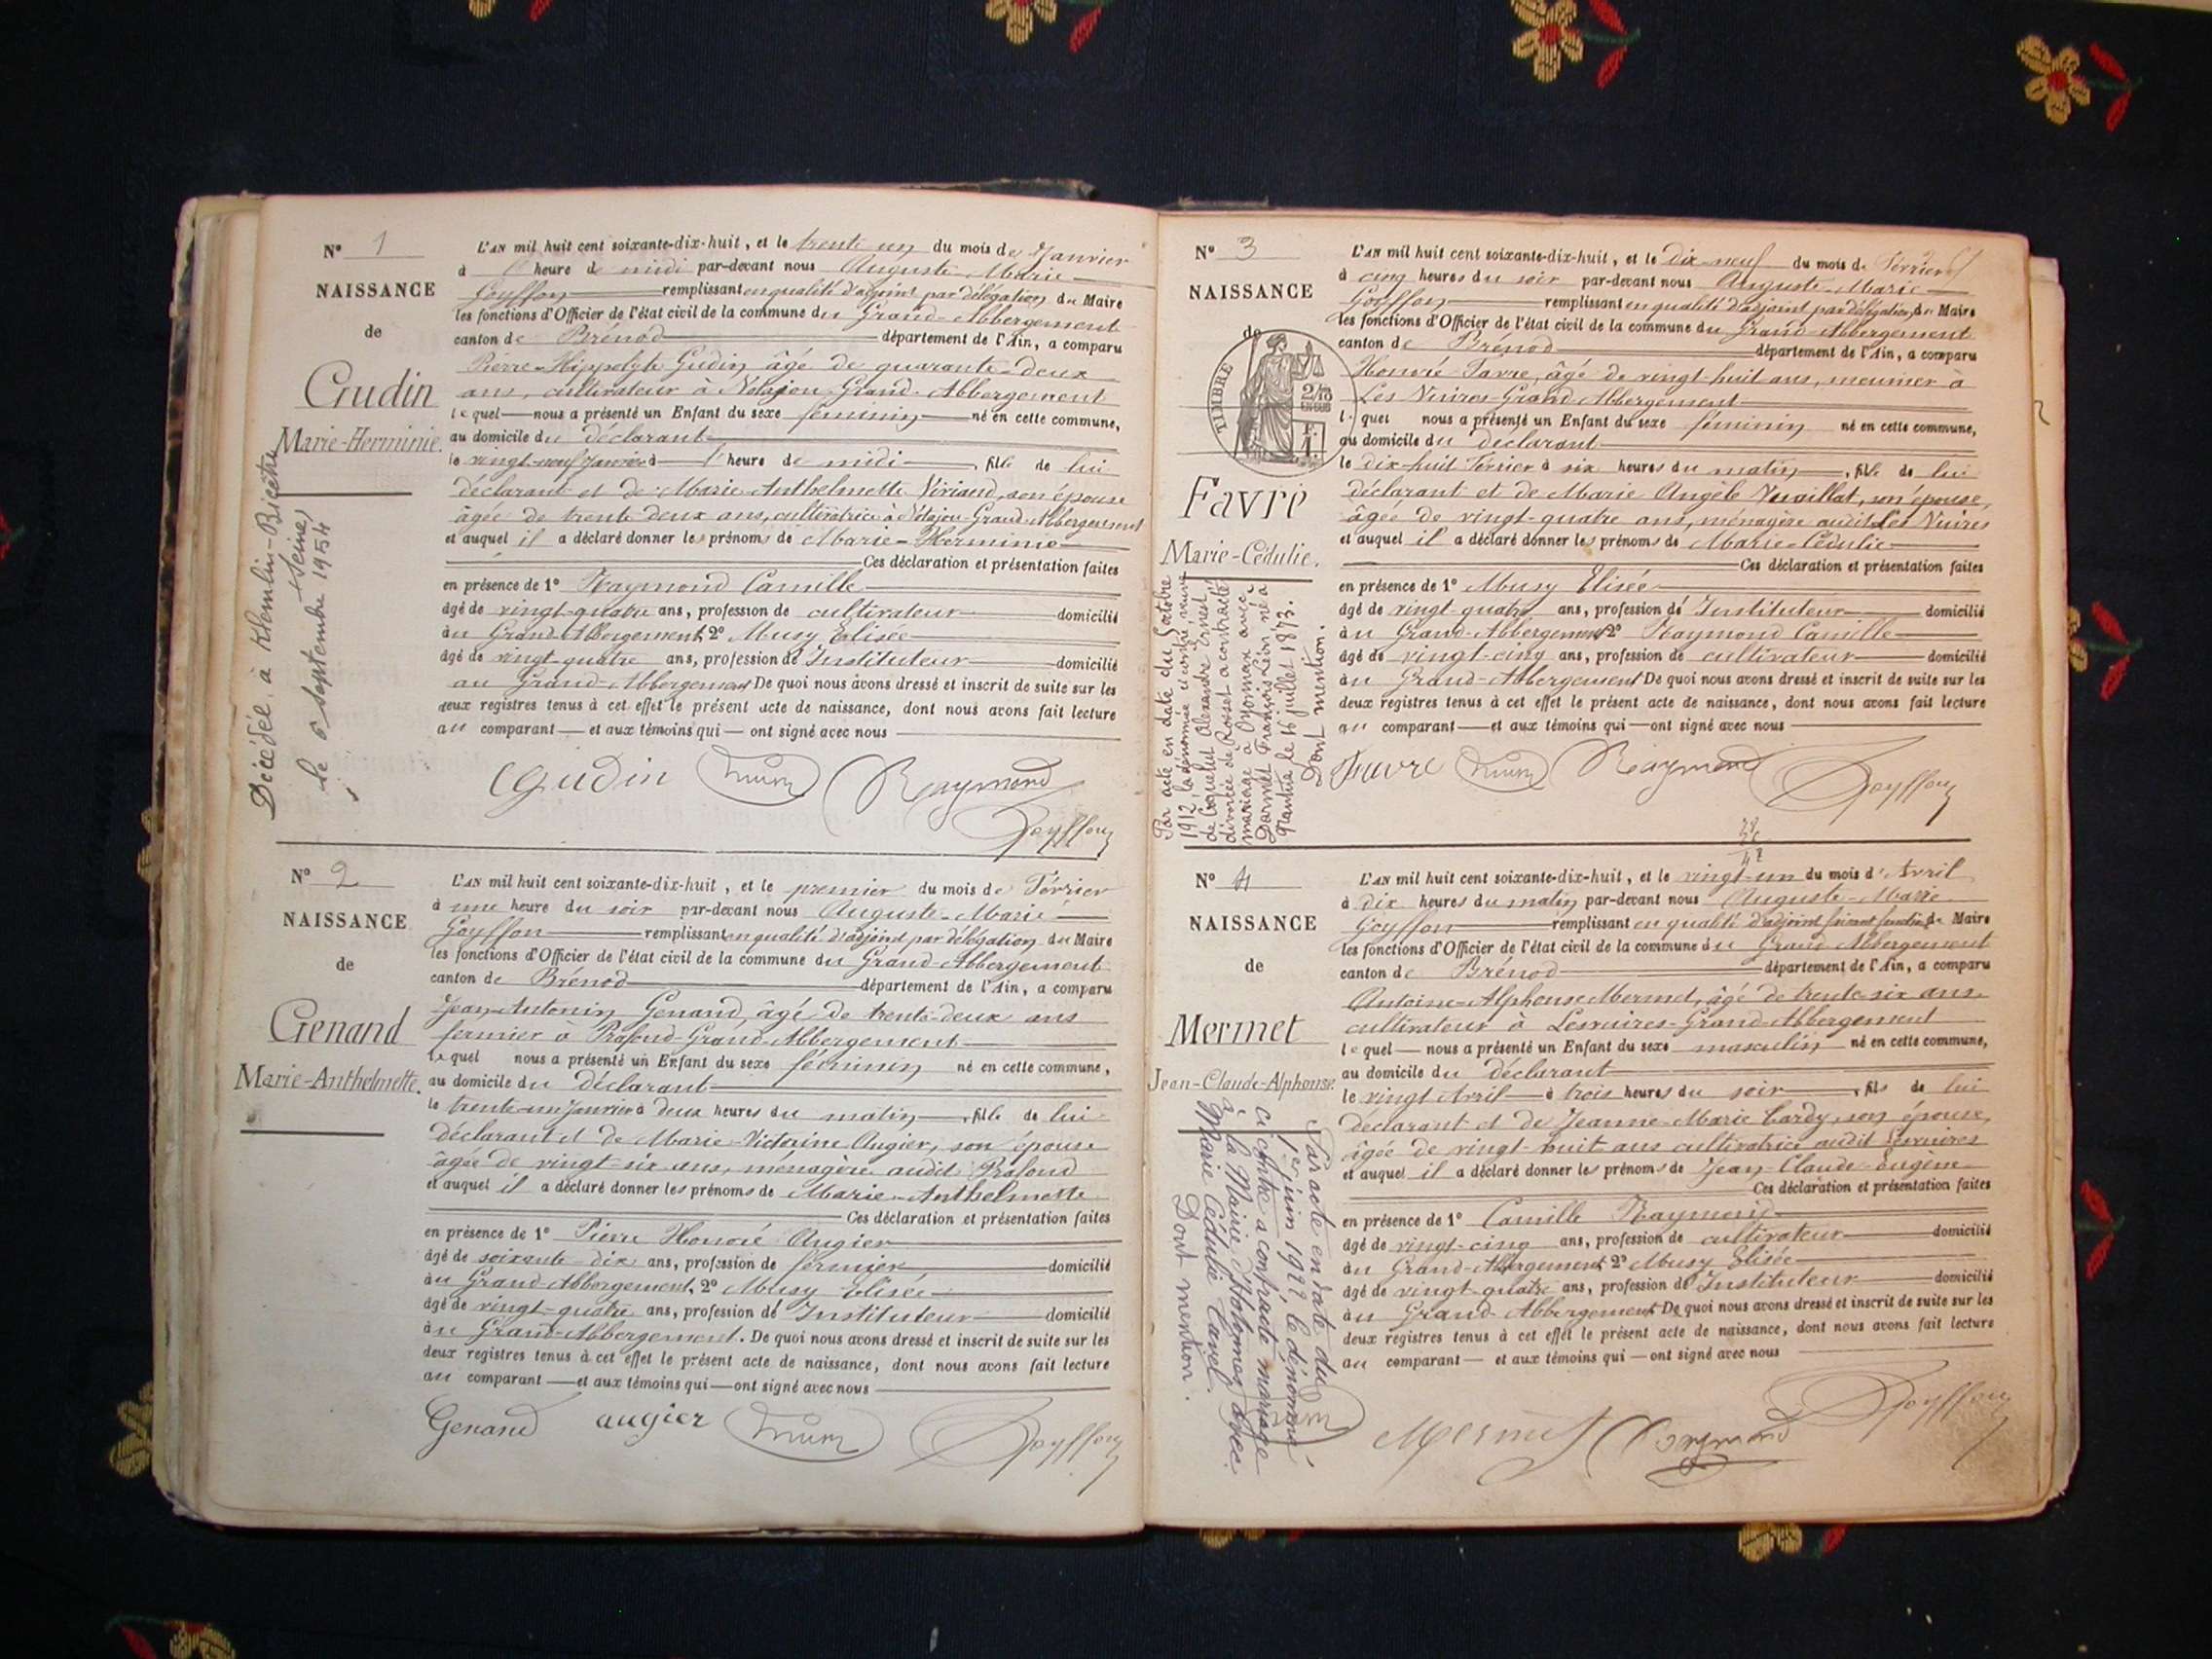 N° 1
NAISSANCE
de
Gudin
Marie-Herminie.
Décédée à Klemlin-Bicêtre
(Seine)
le 6 septembre 1954
L'AN mil huit cent soixante-dix-huit, et le trente un du mois de Janvier
à heure de midi par-devant nous Auguste-Marie
Goyffon remplissant en qualité d'adjoint par délégation du Maire
les fonctions d'Officier de l'état civil de la commune du Grand-Abbergement
canton de Brénod département de l'Ain, a comparu
Pierre-Hippolyte Gudin âgé de quarante-deux
ans, cultivateur à Grand-Abbergement
lequel nous a présenté un Enfant du sexe féminin né en cette commune,
au domicile du déclarant
le vingt-neuf Janvier à heure de midi, fille de lui
déclarant et de Marie Anthelmette Viviand, son épouse
âgée de trente deux ans, cultivatrice à Grand-Abbergement
et auquel il a déclaré donner les prénoms de Marie-Herminie
Ces déclaration et présentation faites
en présence de 1° Raymond Camille
âgé de vingt-quatre ans, profession de cultivateur domicilié
au Grand-Abbergement, 2° Musy Elisée
âgé de vingt-quatre ans, profession de Instituteur domicilié
au Grand-Abbergement De quoi nous avons dressé et inscrit de suite sur les
deux registres tenus à cet effet le présent acte de naissance, dont nous avons fait lecture
au comparant et aux témoins qui ont signé avec nous
Gudin Musy Raymond
Goyffon
N° 2
NAISSANCE
de
Genand
Marie-Anthelmette.
L'AN mil huit cent soixante-dix-huit, et le premier du mois de Février
à une heure du soir par-devant nous Auguste-Marie
Goyffon remplissant en qualité d'adjoint par délégation du Maire
les fonctions d'Officier de l'état civil de la commune du Grand-Abbergement
canton de Brénod département de l'Ain, a comparu
Jean-Antonin Genand, âgé de trente-deux ans
fermier à Rafond-Grand-Abbergement
lequel nous a présenté un Enfant du sexe féminin né en cette commune,
au domicile du déclarant
le trente-un Janvier à deux heures du matin, fille de lui
déclarant et de Marie-Victorine Augier, son épouse
âgée de vingt-six ans, ménagère audit Rafond
et auquel il a déclaré donner les prénoms de Marie-Anthelmette
Ces déclaration et présentation faites
en présence de 1° Pierre Honoré Augier
âgé de soixante-dix ans, profession de fermier domicilié
au Grand-Abbergement, 2° Musy Elisée
âgé de vingt-quatre ans, profession de Instituteur domicilié
au Grand-Abbergement. De quoi nous avons dressé et inscrit de suite sur les
deux registres tenus à cet effet le présent acte de naissance, dont nous avons fait lecture
au comparant et aux témoins qui ont signé avec nous
Genand augier Musy Goyffon
N° 3
NAISSANCE
de
TIMBRE
Favre
Marie-Cédulie.
Par acte en date du 5 octobre
1912, la dénommée ci-contre, veuve
de Alexandre Ernest
divorcée de Rosset a contracté
mariage à Oyonnax avec
Darmet François Léon né à
Nantua le 16 juillet 1873.
Dont mention.
L'AN mil huit cent soixante-dix-huit, et le dix-neuf du mois de Février
à cinq heures du soir par-devant nous Auguste-Marie
Goyffon remplissant en qualité d'adjoint par délégation du Maire
les fonctions d'Officier de l'état civil de la commune du Grand-Abbergement
canton de Brénod département de l'Ain, a comparu
Honoré Favre, âgé de vingt-huit ans, meunier à
Les Nuires-Grand-Abbergement
lequel nous a présenté un Enfant du sexe féminin né en cette commune,
au domicile du déclarant
le dix-huit Février à six heures du matin, fille de lui
déclarant et de Marie Angèle Vuaillat, son épouse,
âgée de vingt-quatre ans, ménagère audit Les Nuires
et auquel il a déclaré donner les prénoms de Marie-Cédulie
Ces déclaration et présentation faites
en présence de 1° Musy Elisée
âgé de vingt-quatre ans, profession d'Instituteur domicilié
au Grand-Abbergement 2° Raymond Camille
âgé de vingt-cinq ans, profession de cultivateur domicilié
au Grand-Abbergement De quoi nous avons dressé et inscrit de suite sur les
deux registres tenus à cet effet le présent acte de naissance, dont nous avons fait lecture
au comparant et aux témoins qui ont signé avec nous
Favre Musy Raymond Goyffon
N° 4
NAISSANCE
de
Mermet
Jean-Claude-Alphonse.
Par acte en date du
1er juin 1922 le dénommé
ci-contre a contracté mariage
à la Mairie d'Hotonnes avec
Marie Cédulie Carrel.
Dont mention.
L'AN mil huit cent soixante-dix-huit, et le vingt-un du mois d'Avril
à dix heures du matin par-devant nous Auguste-Marie
Goyffon remplissant en qualité d'adjoint faisant fonction de Maire
les fonctions d'Officier de l'état civil de la commune du Grand Abbergement
canton de Brénod département de l'Ain, a comparu
Antoine-Alphonse Mermet, âgé de trente-six ans
cultivateur à Lesnuires-Grand-Abbergement
lequel nous a présenté un Enfant du sexe masculin né en cette commune,
au domicile du déclarant
le vingt Avril à trois heures du soir, fils de lui
déclarant et de Jeanne-Marie Cardy, son épouse,
âgée de vingt-huit ans cultivatrice audit Lesnuires
et auquel il a déclaré donner les prénoms de Jean-Claude-Eugène
Ces déclaration et présentation faites
en présence de 1° Camille Raymond
âgé de vingt-cinq ans, profession de cultivateur domicilié
au Grand-Abbergement 2° Musy Elisée
âgé de vingt-quatre ans, profession d'Instituteur domicilié
au Grand-Abbergement De quoi nous avons dressé et inscrit de suite sur les
deux registres tenus à cet effet le présent acte de naissance, dont nous avons fait lecture
au comparant et aux témoins qui ont signé avec nous
Goyffon
Mermet Raymond